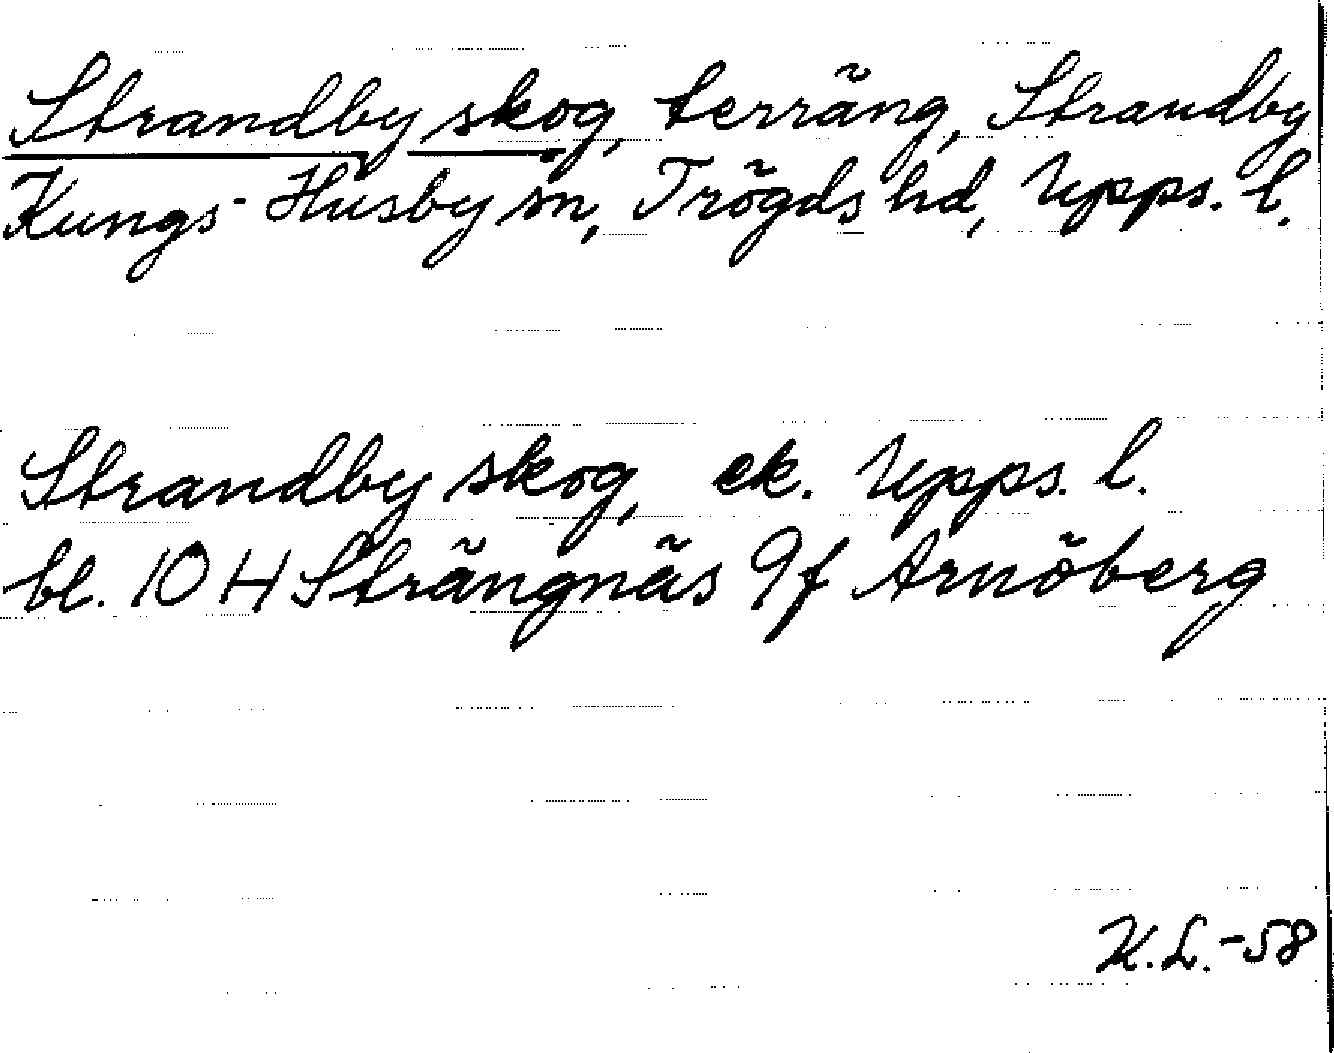 Strandby skog, terräng, Strandby
Kungs-Husby sn, Trögds hd, Upps. l.
Strandby skog, ek. Upps. l.
bl. 10 H Strängnäs 9f Arnöberg
K.L.-58